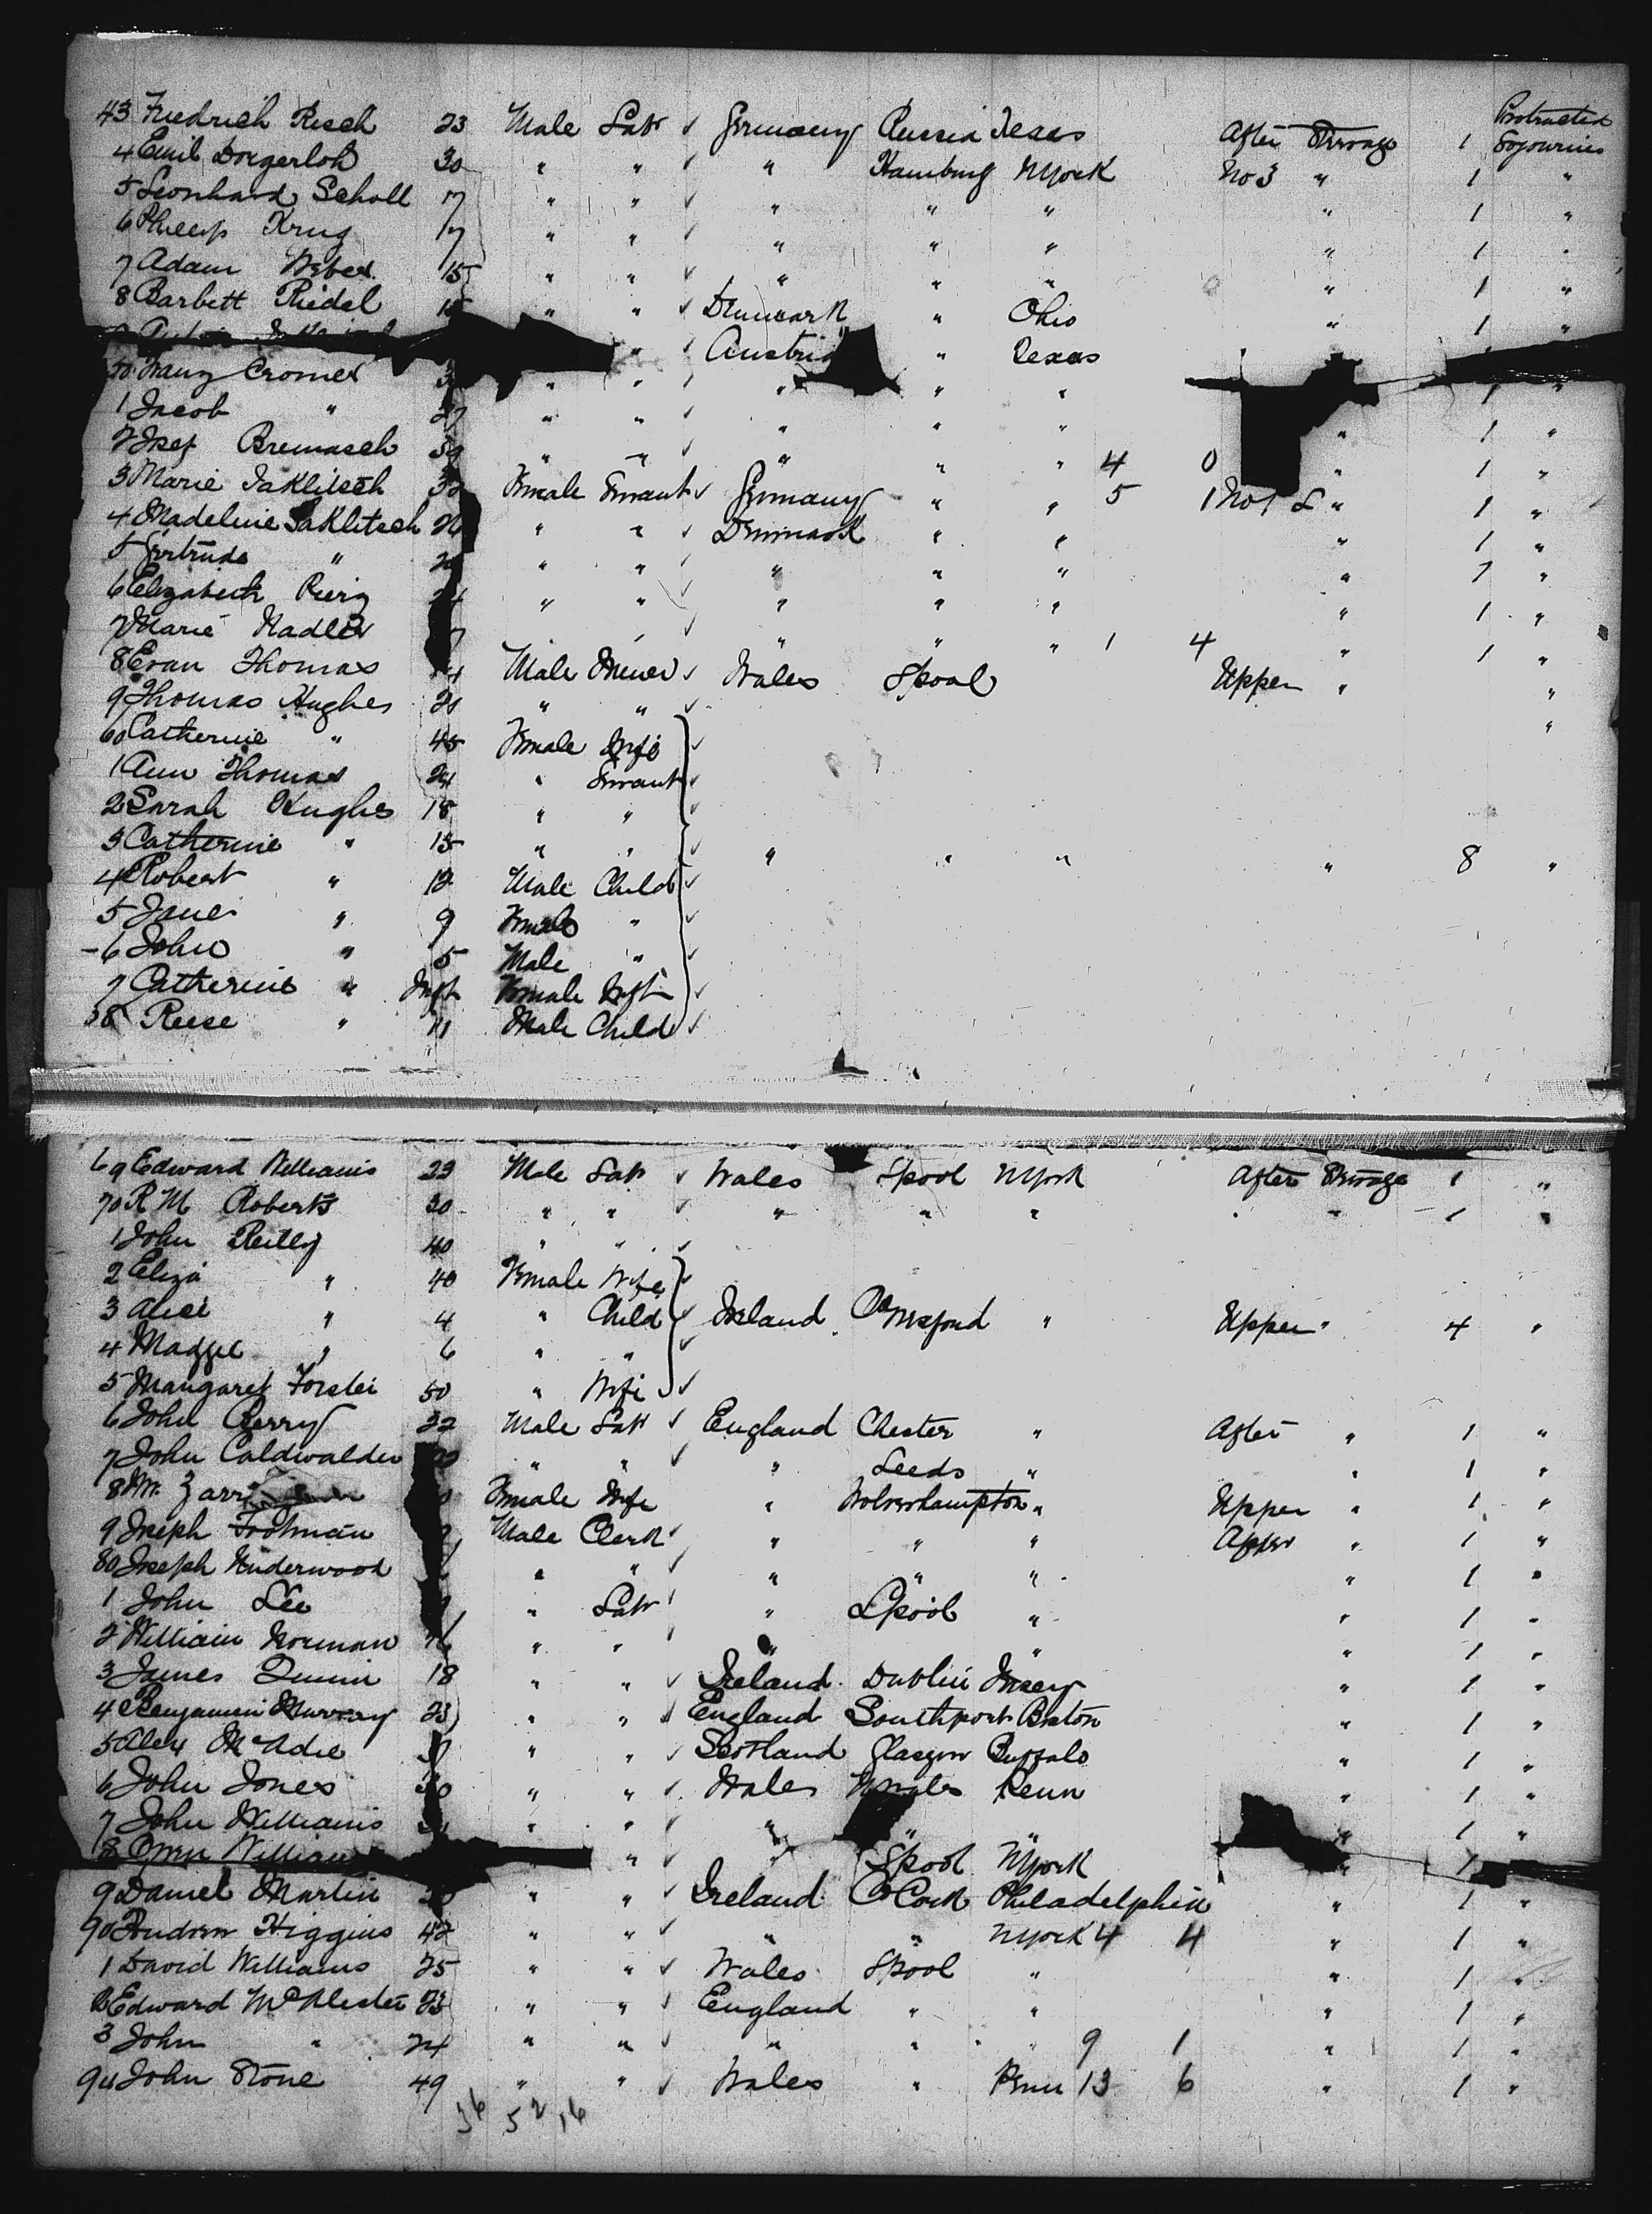 Protracted
43 Friedrich Resch 23 Male Labr ✓ Germany Russia Texas After Steerage 1 Sojourning
4 Emil Dorgerloh 30 " " ✓ " Hamburg NYork No 3 " 1 "
5 Leonhard Scholl 17 " " ✓ " " " " 1 "
6 Phillip Krug 17 " " ✓ " " " " 1 "
7 Adam Weber 15 " " ✓ " " " " 1 "
8 Barbett Riedel " " ✓ Denmark " Ohio " 1 "
" ✓ Austria " Texas
50 Franz Cromer " " " " " 1 "
1 Jacob " 27 " " ✓ " " " " 1 "
2 Josef Bremasch 39 " " " " " 4 0 " 1 "
3 Marie Jaklitsch 32 Female Servant ✓ Germany " " 5 1 No 1 S " 1 "
4 Madeline Jaklitsch 26 " " ✓ Denmark " " " 1 "
5 Gertrude " " " ✓ " " " " 1 "
6 Elizabeth " " ✓ " " " " 1 "
7 Marie Nadler " ✓ " " " 1 4 " 1 "
8 Evan Thomas Male Miner ✓ Wales Lpool Upper " "
9 Thomas Hughes 21 " " ✓ "
60 Catherine " 45 Female Wife ✓
1 Ann Thomas 24 " Servant ✓
2 Sarah Hughes 18 " " ✓
3 Catherine " 15 " " ✓ " " " " 8 "
4 Robert " 12 Male Child ✓
5 Jane " 9 Female " ✓
6 John " 5 Male " ✓
7 Catherine " Inft Female Inft ✓
8 Reese " 11 Male Child ✓
69 Edward Williams 23 Male Labr ✓ Wales Lpool NYork After Steerage 1 "
70 R M Roberts 30 " " ✓ " " " " " 1 "
1 John Reilly 40 " " ✓
2 Eliza " 40 Female Wife ✓
3 Alice " 4 " Child ✓ Ireland Co Wexford " Upper " 4 "
4 Maggie " 6 " " ✓
5 Margaret Forster 50 " Wife ✓
6 John Berry 22 Male Labr ✓ England Chester " After " 1 "
7 John Caldwalder " " ✓ " Leeds " " 1 "
8 Mr. Female Wife " Wolverhampton " Upper " 1 "
9 Joseph Footman Male Clerk ✓ " " " After " 1 "
80 Joseph Underwood " " ✓ " " " " 1 "
1 John Lee " Labr ✓ " Lpool " " 1 "
2 William Norman " " " " " 1 "
3 James Quinn 18 " " ✓ Ireland Dublin NJersey " 1 "
4 Benjamin Murray 23 " " ✓ England Southport Boston " 1 "
5 Alex McAdie " " ✓ Scotland Glasgow Buffalo " 1 "
6 John Jones 30 " " ✓ Wales NWales Penn " 1 "
7 John Williams " " ✓ " " " " 1 "
8 Owen Williams " ✓ Lpool NYork " 1
9 Daniel Martin " " ✓ Ireland Co Cork Philadelphia " 1 "
90 Andrew Higgins 42 " " ✓ " " NYork 4 4 " 1 "
1 David Williams 25 " " ✓ Wales Lpool " " 1 "
2 Edward McAlester 23 " " ✓ England " " " 1 "
3 John " 24 " " ✓ " " " 9 1 " 1 "
94 John Stone 49 " " ✓ Wales " Penn 13 6 " 1 "
36 52 16